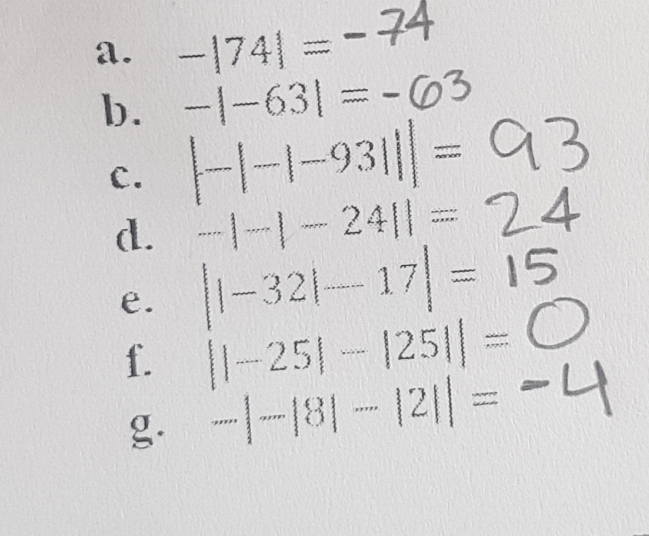 a. -|74| = -74
b. -|-63| = -63
c. |-|-|-93||| = 93
d. -|-|-24|| = 24
e. ||-32|-17| = 15
f. ||-25|-|25|| = 0
g. -|-|8|-|2|| = -4